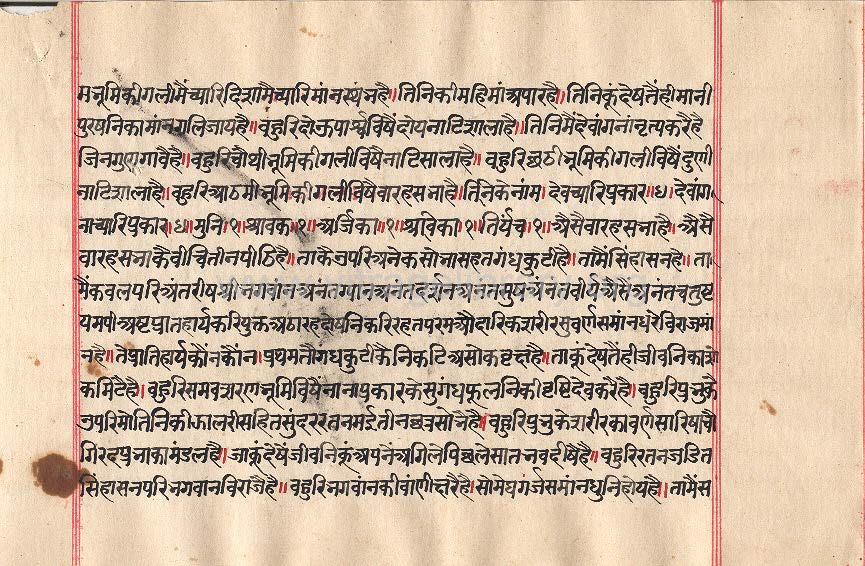 मभूमिकीगलीमैंच्यारिदिशामैच्यारिमांनस्थंनहै॥तिनिकीमहिमांअपारहै॥तिनिकूंदेषतैंहीमानी
पुरषनिकामांनगलिजायहै॥वहुरिदोऊपार्श्वविषैंदोयनाटिशालाहै॥तिनिमैदेवांगनांनृत्यकरैहै
जिनगुणगावैहै॥वहुरिचौथीभूमिकीगलीविषैनाटिसालाहै॥वहुरिछठीभूमिकीगलीविषैंदुणी
नाटिशालाहै॥वहुरिआठमीभूमिकीगलीविषैवारहसभाहै॥तिनिकेनांम।देवच्यारिप्रकार॥४।देवांग
नाच्यारिप्रकार॥४॥मुनि॥१॥श्रावक॥१॥अर्जिका॥१॥श्राविका।१॥तिर्यंच॥१॥अैसैवारहसभाहै॥अैसै
वारहसभाकैवीचितीनपीठिहै॥ताकैऊपरिअनेकसोभासहतगंधकुटीहै॥तामैंसिंहासनहै॥ता
मैंकवलपरिअंतरीषश्रीभगवांनअनंतग्यांनअनंतदर्शनअनंतसुषअनंतवीर्यअैसैअनंतचतुष्ट
यमयीअष्टप्रातहार्यकरियुक्तअठारहदोषनिकरिरहतपरमऔदारिकशरीरसुवर्णसमांनधरेंविराजमां
नहै॥तेप्रातिहार्यकौंनकौंन।प्रथमतौगंधकुटीकैनिकटिअसोकवृक्षहै॥ताकूंदेषतैंहीजीवनिकाशो
कमिटैहै॥वहुरिसमवशरणभूमिविषैंनानाप्रकारकेसुगंधफूलनिकीवृष्टिदेवकरैहै॥वहुरिप्रभुकै
ऊपरिमोतिनिकीझालरीसहितसुंदररतनमईतीनछत्रसोभैहै॥वहुरिप्रभुकेशरीरकावर्णसारिषाचौ
गिरदप्रभाकामंडलहै॥जाकूंदेषेंजीवनिकूंअपनेंअगिलेपिछलेसातभवदीषैहै॥वहुरिरतनजडित
सिंहासनपरिभगवांनविराजैहै॥वहुरिभगवांनकीवांणीक्षरैहै॥सोमेघगर्जसमांनधुनिहोयहै॥तामैंस